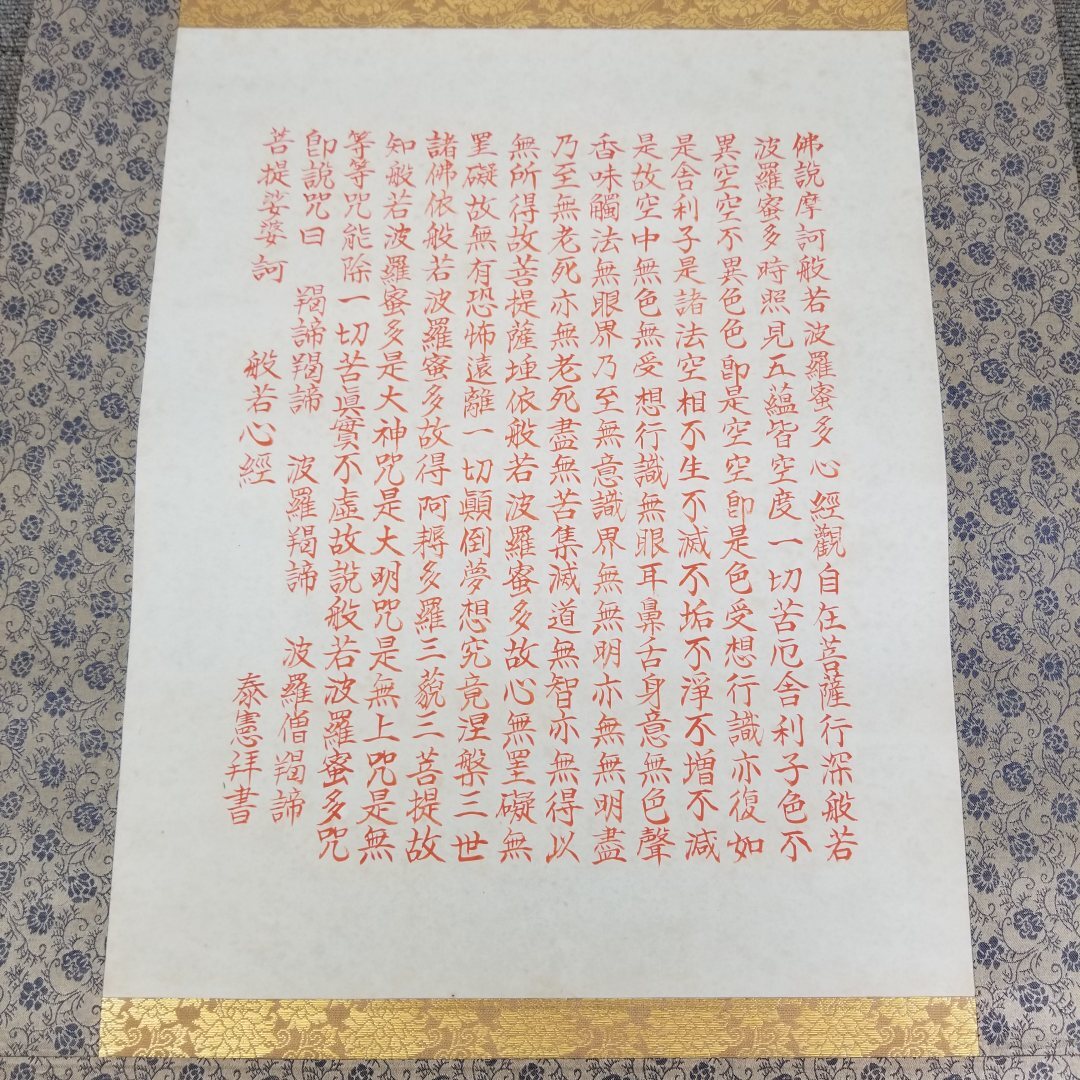 佛説摩訶般若波羅蜜多心經觀自在菩薩行深般若
波羅蜜多時照見五蘊皆空度一切苦厄舎利子色不
異空空不異色色即是空空即是色受想行識亦復如
是舎利子是諸法空相不生不滅不垢不淨不增不減
是故空中無色無受想行識無眼耳鼻舌身意無色聲
香味觸法無眼界乃至無意識界無無明亦無無明盡
乃至無老死亦無老死盡無苦集滅道無智亦無得以
無所得故菩提薩埵依般若波羅蜜多故心無罣礙無
罣礙故無有恐怖遠離一切顚倒夢想究竟涅槃三世
諸佛依般若波羅蜜多故得阿耨多羅三藐三菩提故
知般若波羅蜜多是大神咒是大明咒是無上咒是無
等等咒能除一切苦眞實不虛故説般若波羅蜜多咒
即説咒曰 羯諦羯諦 波羅羯諦 波羅僧羯諦
菩提娑婆訶 般若心經
泰憲拜書